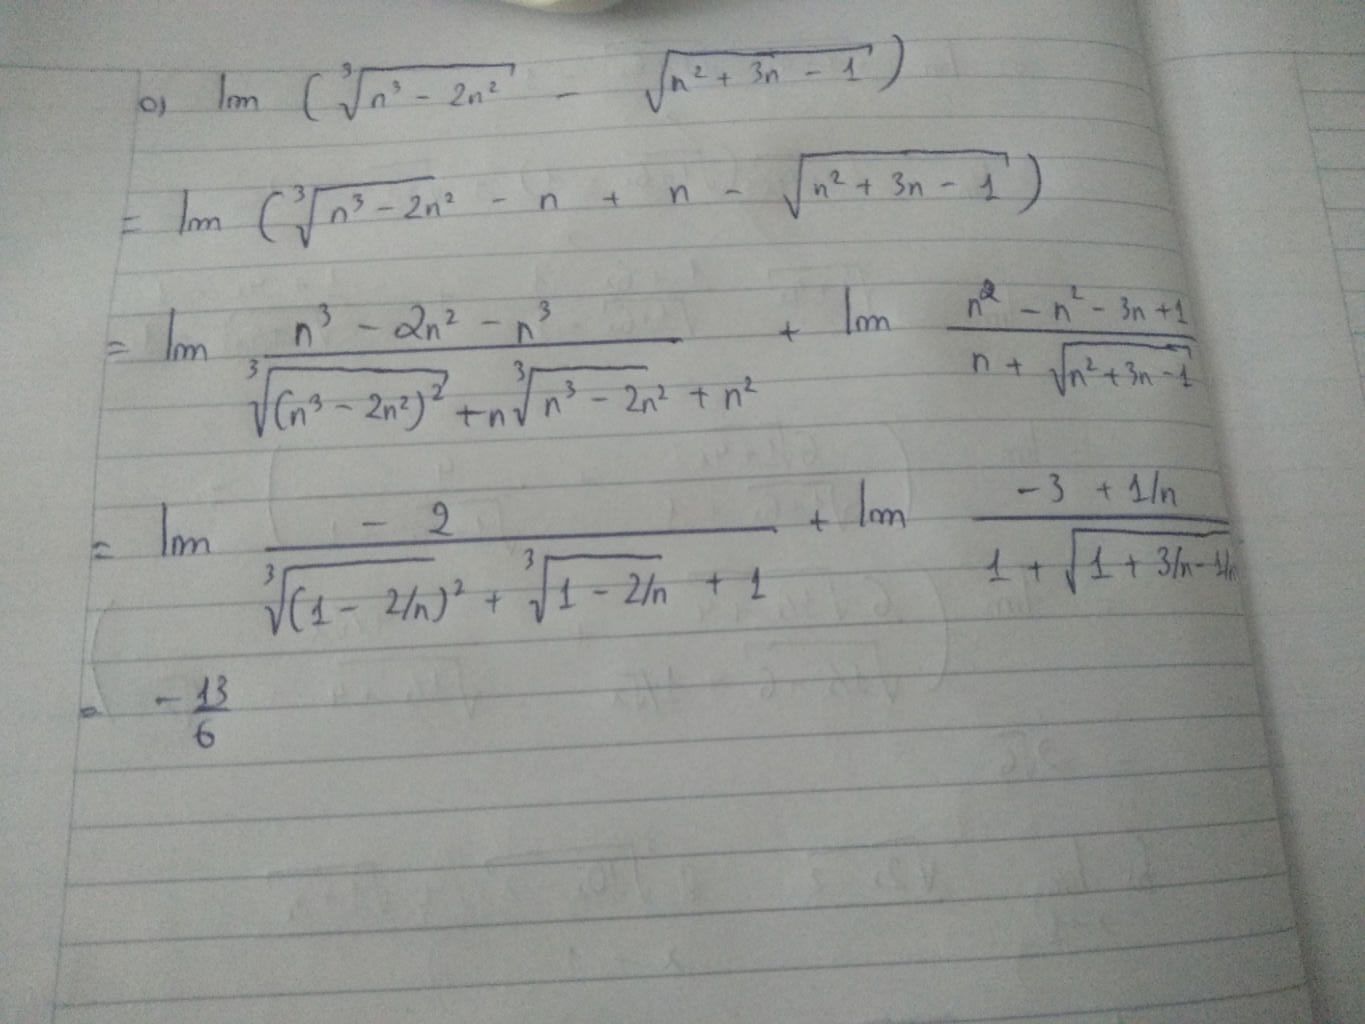 o) lim (∛(n³ - 2n²) - √(n² + 3n - 1))
= lim (∛(n³ - 2n²) - n + n - √(n² + 3n - 1))
= lim (n³ - 2n² - n³)/(∛((n³ - 2n²)²) + n∛(n³ - 2n²) + n²) + lim (n² - n² - 3n + 1)/(n + √(n² + 3n - 1))
= lim (-2)/(∛((1 - 2/n)²) + ∛(1 - 2/n) + 1) + lim (-3 + 1/n)/(1 + √(1 + 3/n - 1/n))
= -13/6